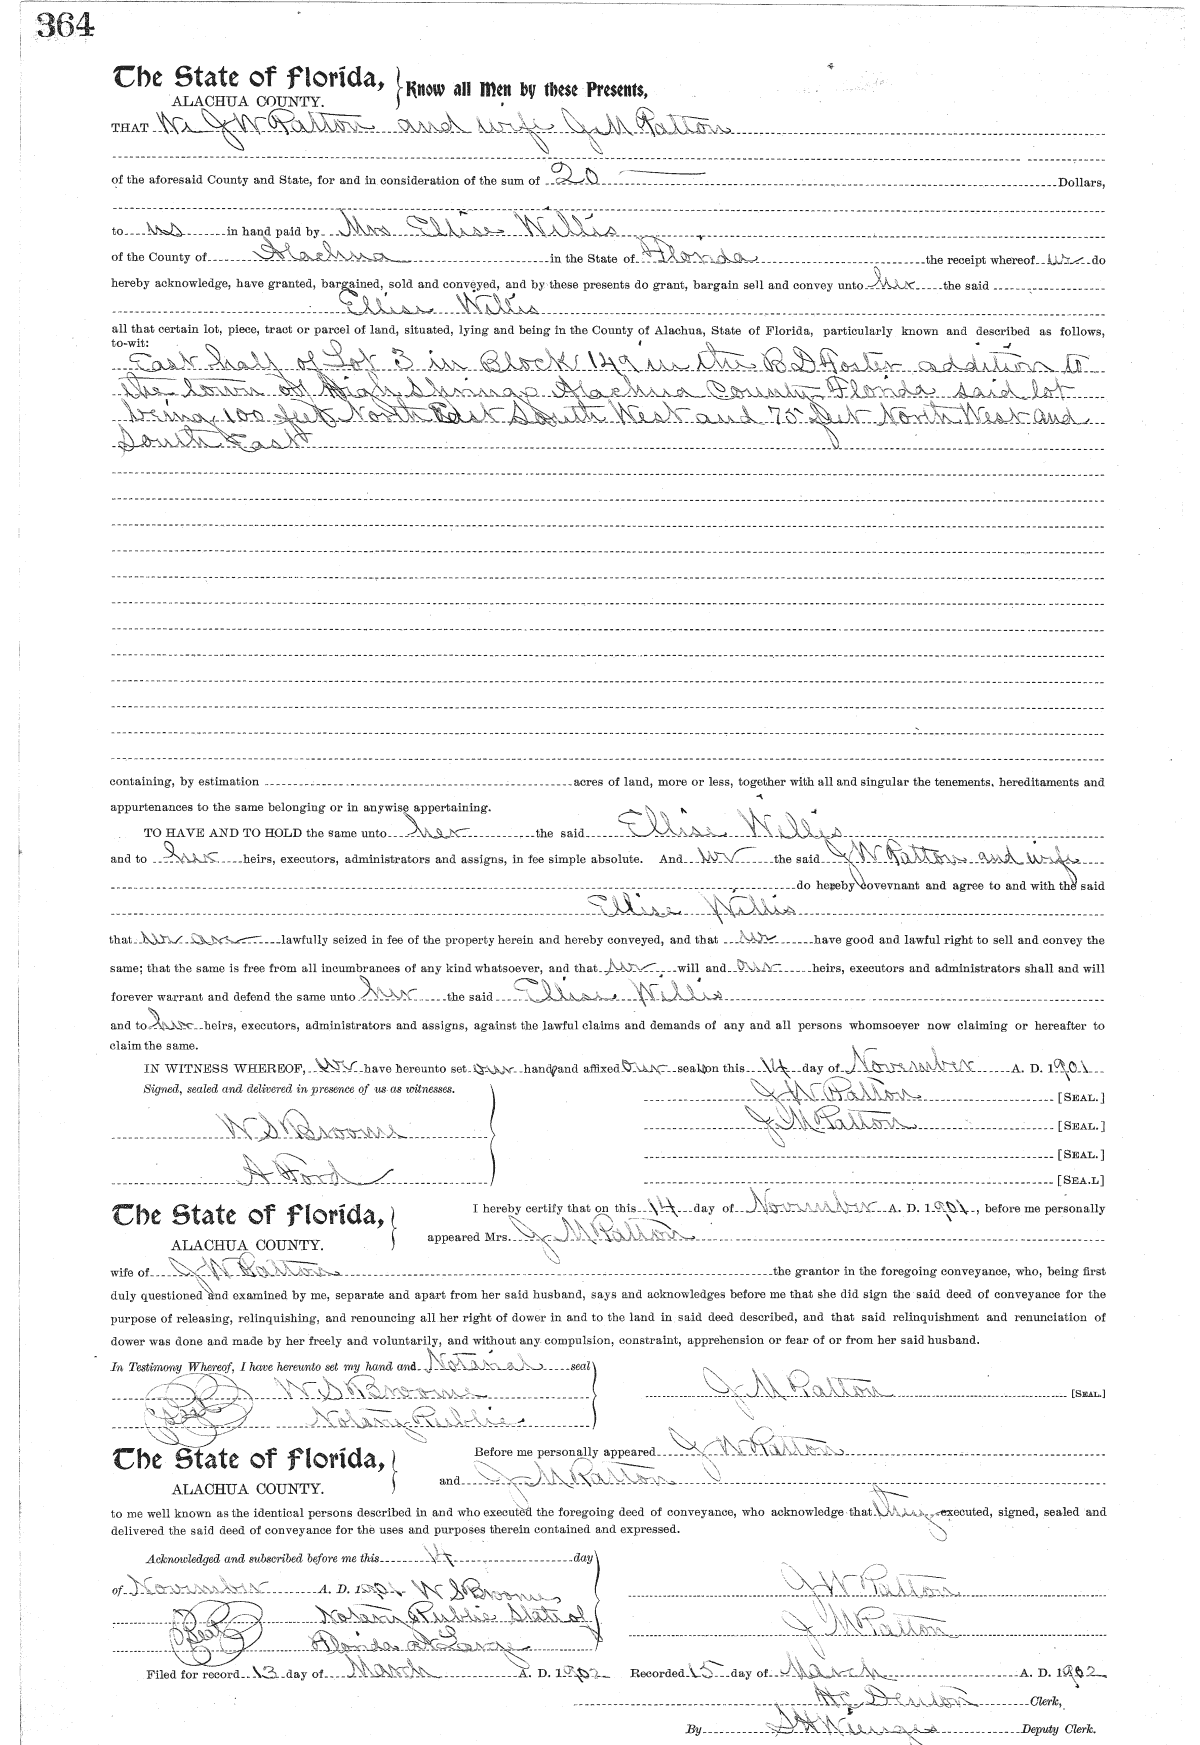 364
The State of Florida,
ALACHUA COUNTY.
Know all Men by these Presents,
THAT We J W Patton and wife J M Patton
of the aforesaid County and State, for and in consideration of the sum of 20 Dollars,
to us in hand paid by Mrs Ellise Willis
of the County of Alachua in the State of Florida the receipt whereof we do
hereby acknowledge, have granted, bargained, sold and conveyed, and by these presents do grant, bargain sell and convey unto her the said
Ellise Willis
all that certain lot, piece, tract or parcel of land, situated, lying and being in the County of Alachua, State of Florida, particularly known and described as follows,
to-wit:
East half of Lot 3 in Block 149 in the B D Foster addition to
the town of High Springs Alachua County Florida said lot
being 100 feet North East South West and 75 feet North West and
South East
containing, by estimation acres of land, more or less, together with all and singular the tenements, hereditaments and
appurtenances to the same belonging or in anywise appertaining.
TO HAVE AND TO HOLD the same unto her the said Ellise Willis
and to her heirs, executors, administrators and assigns, in fee simple absolute. And we the said J W Patton and wife
do hereby covevnant and agree to and with the said
Ellise Willis
that we are lawfully seized in fee of the property herein and hereby conveyed, and that we have good and lawful right to sell and convey the
same; that the same is free from all incumbrances of any kind whatsoever, and that we will and our heirs, executors and administrators shall and will
forever warrant and defend the same unto her the said Ellise Willis
and to her heirs, executors, administrators and assigns, against the lawful claims and demands of any and all persons whomsoever now claiming or hereafter to
claim the same.
IN WITNESS WHEREOF, We have hereunto set our hand and affixed our seal on this 14 day of November A. D. 1901
Signed, sealed and delivered in presence of us as witnesses.
J W Patton [SEAL.]
W S Broome
J M Patton [SEAL.]
[SEAL.]
A Ford
[SEA.L]
The State of Florida,
ALACHUA COUNTY.
I hereby certify that on this 14 day of November A. D. 1901, before me personally
appeared Mrs. J M Patton
wife of J W Patton the grantor in the foregoing conveyance, who, being first
duly questioned and examined by me, separate and apart from her said husband, says and acknowledges before me that she did sign the said deed of conveyance for the
purpose of releasing, relinquishing, and renouncing all her right of dower in and to the land in said deed described, and that said relinquishment and renunciation of
dower was done and made by her freely and voluntarily, and without any compulsion, constraint, apprehension or fear of or from her said husband.
In Testimony Whereof, I have hereunto set my hand and Notarial seal
W S Broome
J M Patton [SEAL.]
Seal Notary Public
The State of Florida,
ALACHUA COUNTY.
Before me personally appeared J W Patton
and J M Patton
to me well known as the identical persons described in and who executed the foregoing deed of conveyance, who acknowledge that they executed, signed, sealed and
delivered the said deed of conveyance for the uses and purposes therein contained and expressed.
Acknowledged and subscribed before me this 14 day
of November A. D. 1901 W S Broome
J W Patton
Seal Notary Public State of
Florida at Large
J M Patton
Filed for record 13 day of March A. D. 1902 Recorded 15 day of March A. D. 1902
H C Denton Clerk,
By S H Wienges Deputy Clerk.